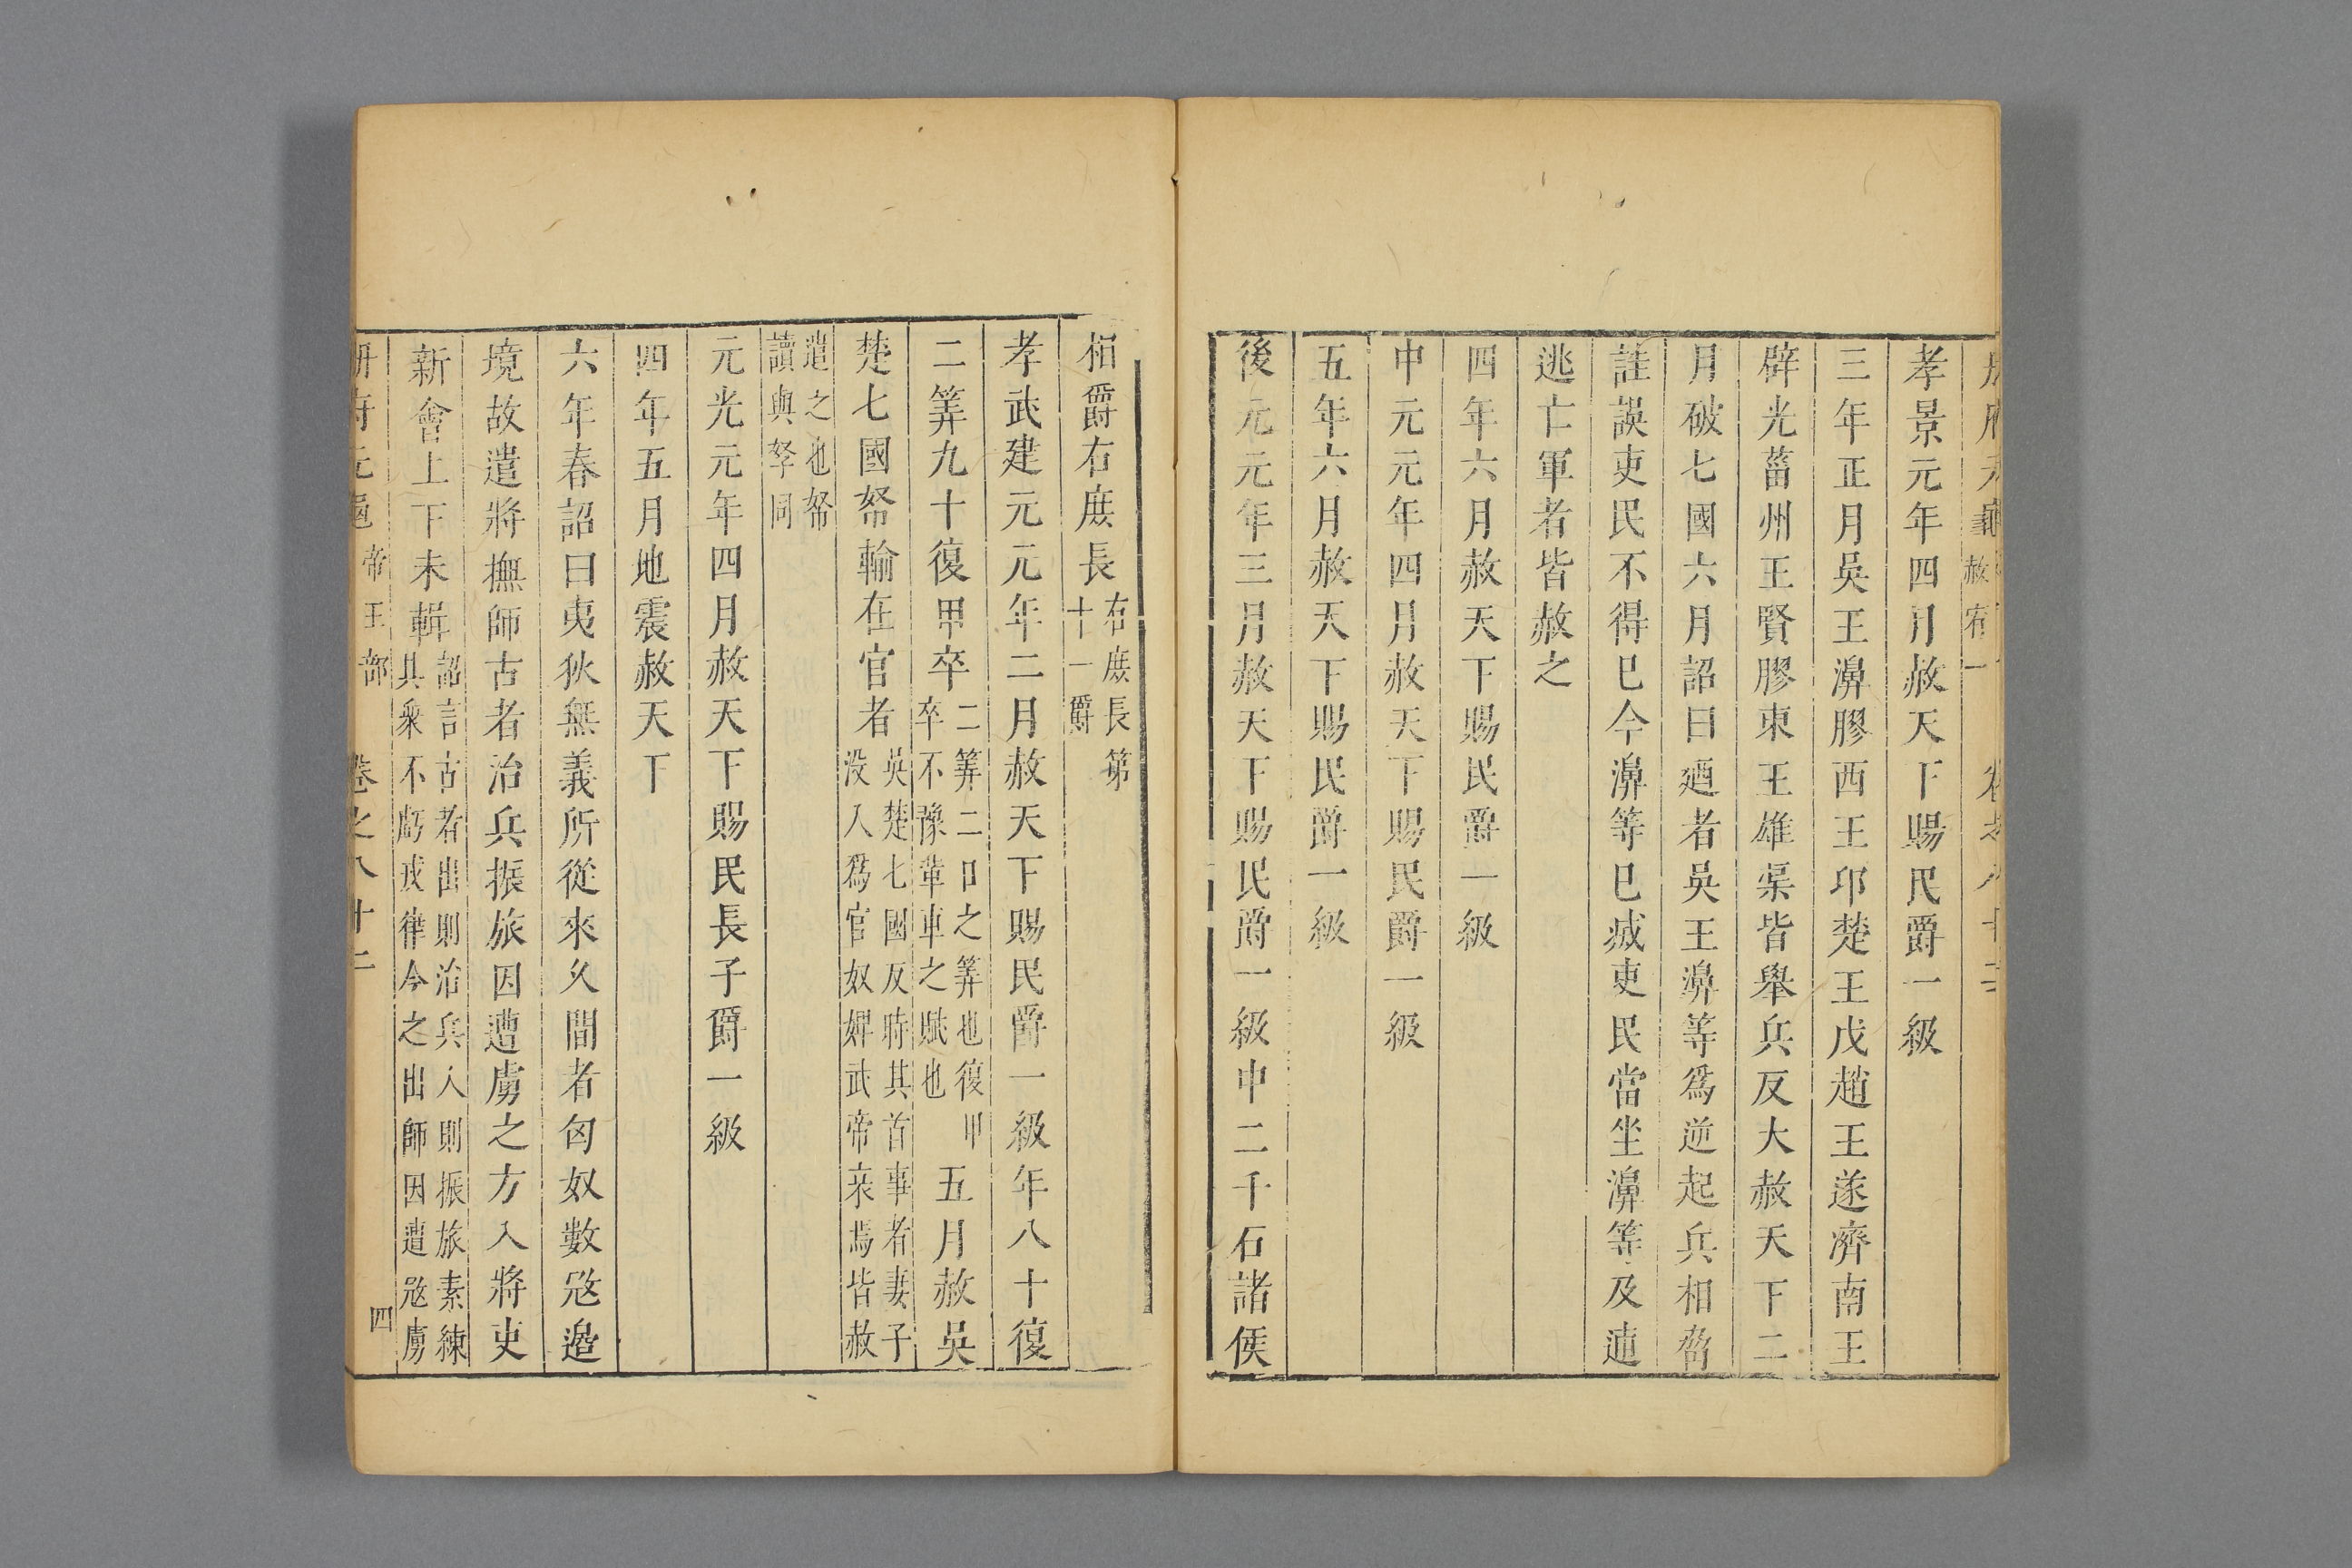 赦宥一
孝景元年四月赦天下賜民爵一級
三年正月吳王濞膠西王卭楚王戊趙王遂濟南王
辟光菑州王賢膠東王雄渠皆舉兵反大赦天下二
月破七國六月詔曰廼者吳王濞等爲逆起兵相脅
詿誤吏民不得已今濞等已滅吏民當坐濞等及逋
逃亡軍者皆赦之
四年六月赦天下賜民爵一級
中元元年四月赦天下賜民爵一級
五年六月赦天下賜民爵一級
後元元年三月赦天下賜民爵一級中二千石諸侯
相爵右庶長右庶長第十一爵
孝武建元元年二月赦天下賜民爵一級年八十復
二筭九十復甲卒二筭二口之筭也復甲卒不豫軰車之賦也五月赦吳
楚七國帑輸在官者吳楚七國反時其首事者妻子没入爲官奴婢武帝哀焉皆赦
遣之也帑讀與孥同
元光元年四月赦天下賜民長子爵一級
四年五月地震赦天下
六年春詔曰夷狄無義所從來久間者匈奴數寇邉
境故遣將撫師古者治兵振旅因遭虜之方入將吏
新會上下未輯詔言古者出則治兵入則振旅素練其衆不虧戎律今之出師因遭寇虜
帝王部 卷之八十二 四